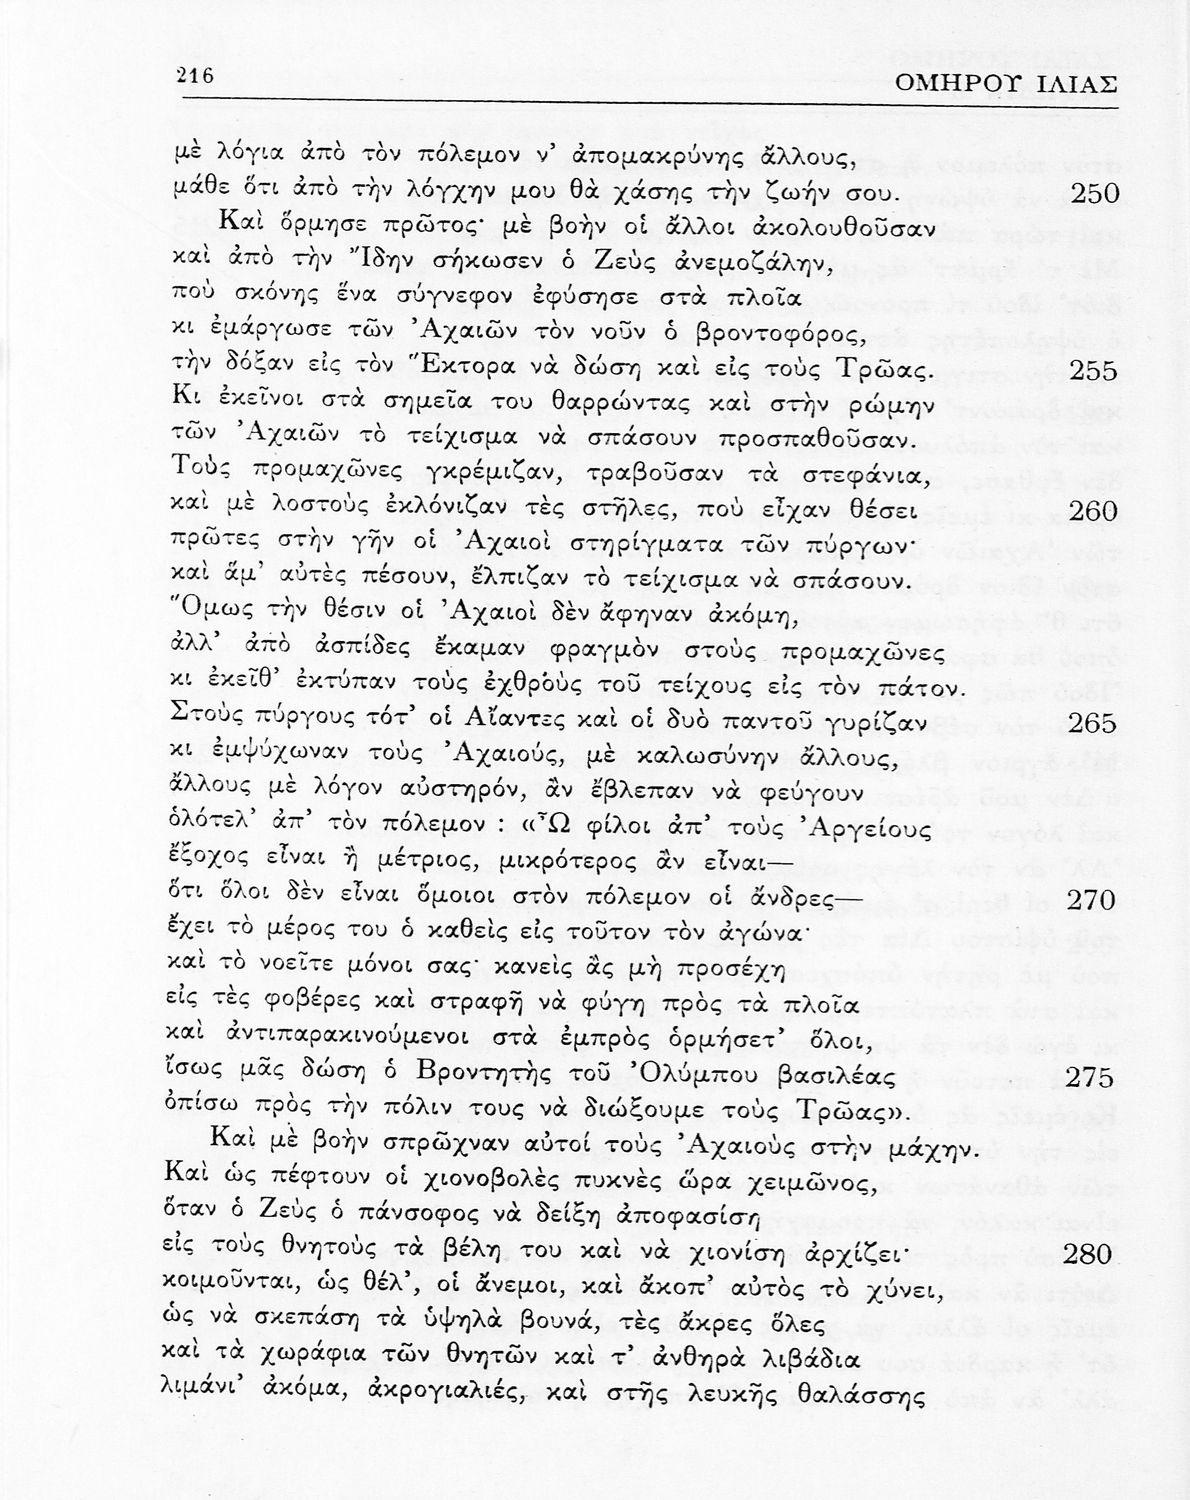 216
ΟΜΗΡΟΥ ΙΛΙΑΣ
μὲ λόγια ἀπὸ τὸν πόλεμον ν’ ἀπομακρύνης ἄλλους,
μάθε ὅτι ἀπὸ τὴν λόγχην μου θὰ χάσης τὴν ζωήν σου. 250
Καὶ ὅρμησε πρῶτος· μὲ βοὴν οἱ ἄλλοι ἀκολουθοῦσαν
καὶ ἀπὸ τὴν Ἴδην σήκωσεν ὁ Ζεὺς ἀνεμοζάλην,
ποὺ σκόνης ἕνα σύγνεφον ἐφύσησε στὰ πλοῖα
κι ἐμάργωσε τῶν Ἀχαιῶν τὸν νοῦν ὁ βροντοφόρος,
τὴν δόξαν εἰς τὸν Ἕκτορα νὰ δώση καὶ εἰς τοὺς Τρῶας. 255
Κι ἐκεῖνοι στὰ σημεῖα του θαρρώντας καὶ στὴν ρώμην
τῶν Ἀχαιῶν τὸ τείχισμα νὰ σπάσουν προσπαθοῦσαν.
Τοὺς προμαχῶνες γκρέμιζαν, τραβοῦσαν τὰ στεφάνια,
καὶ μὲ λοστοὺς ἐκλόνιζαν τὲς στῆλες, ποὺ εἶχαν θέσει 260
πρῶτες στὴν γῆν οἱ Ἀχαιοὶ στηρίγματα τῶν πύργων·
καὶ ἅμ’ αὐτὲς πέσουν, ἔλπιζαν τὸ τείχισμα νὰ σπάσουν.
Ὅμως τὴν θέσιν οἱ Ἀχαιοὶ δὲν ἄφηναν ἀκόμη,
ἀλλ’ ἀπὸ ἀσπίδες ἔκαμαν φραγμὸν στοὺς προμαχῶνες
κι ἐκεῖθ’ ἐκτύπαν τοὺς ἐχθροὺς τοῦ τείχους εἰς τὸν πάτον.
Στοὺς πύργους τότ’ οἱ Αἴαντες καὶ οἱ δυὸ παντοῦ γυρίζαν 265
κι ἐμψύχωναν τοὺς Ἀχαιούς, μὲ καλωσύνην ἄλλους,
ἄλλους μὲ λόγον αὐστηρόν, ἂν ἔβλεπαν νὰ φεύγουν
ὁλότελ’ ἀπ’ τὸν πόλεμον : «Ὦ φίλοι ἀπ’ τοὺς Ἀργείους
ἔξοχος εἶναι ἢ μέτριος, μικρότερος ἂν εἶναι—
ὅτι ὅλοι δὲν εἶναι ὅμοιοι στὸν πόλεμον οἱ ἄνδρες— 270
ἔχει τὸ μέρος του ὁ καθεὶς εἰς τοῦτον τὸν ἀγώνα·
καὶ τὸ νοεῖτε μόνοι σας· κανεὶς ἂς μὴ προσέχη
εἰς τὲς φοβέρες καὶ στραφῆ νὰ φύγη πρὸς τὰ πλοῖα
καὶ ἀντιπαρακινούμενοι στὰ ἐμπρὸς ὁρμήσετ’ ὅλοι,
ἴσως μᾶς δώση ὁ Βροντητὴς τοῦ Ὀλύμπου βασιλέας 275
ὀπίσω πρὸς τὴν πόλιν τους νὰ διώξουμε τοὺς Τρῶας».
Καὶ μὲ βοὴν σπρῶχναν αὐτοί τοὺς Ἀχαιοὺς στὴν μάχην.
Καὶ ὡς πέφτουν οἱ χιονοβολὲς πυκνὲς ὥρα χειμῶνος,
ὅταν ὁ Ζεὺς ὁ πάνσοφος νὰ δείξη ἀποφασίση
εἰς τοὺς θνητοὺς τὰ βέλη του καὶ νὰ χιονίση ἀρχίζει· 280
κοιμοῦνται, ὡς θέλ’, οἱ ἄνεμοι, καὶ ἄκοπ’ αὐτὸς τὸ χύνει,
ὡς νὰ σκεπάση τὰ ὑψηλὰ βουνά, τὲς ἄκρες ὅλες
καὶ τὰ χωράφια τῶν θνητῶν καὶ τ’ ἀνθηρὰ λιβάδια
λιμάνι’ ἀκόμα, ἀκρογιαλιές, καὶ στῆς λευκῆς θαλάσσης